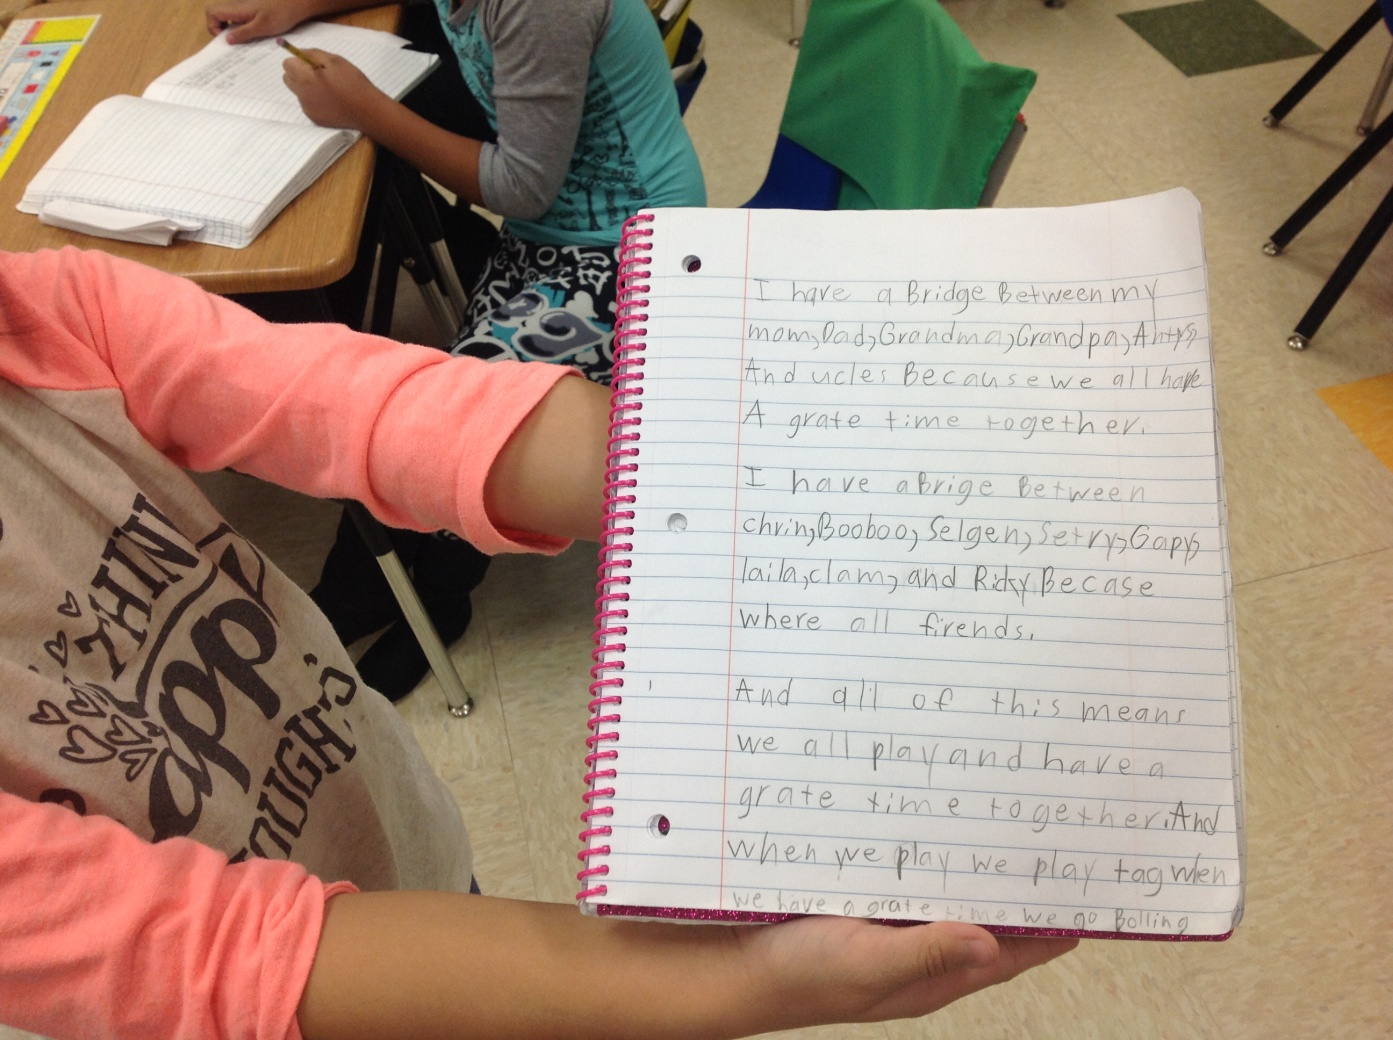 I have a Bridge Between my
mom, Dad, Grandma, Grandpa, Antys,
And ucles Because we all have
A grate time together.
I have a Brige Between
chrin, Booboo, Selgen, Setry, Gapy,
laila, clam, and Ricky Becase
where all firends.
And all of this means
we all play and have a
grate time together. And
when we play we play tag when
we have a grate time we go Bolling
THINK
THOUGHTS